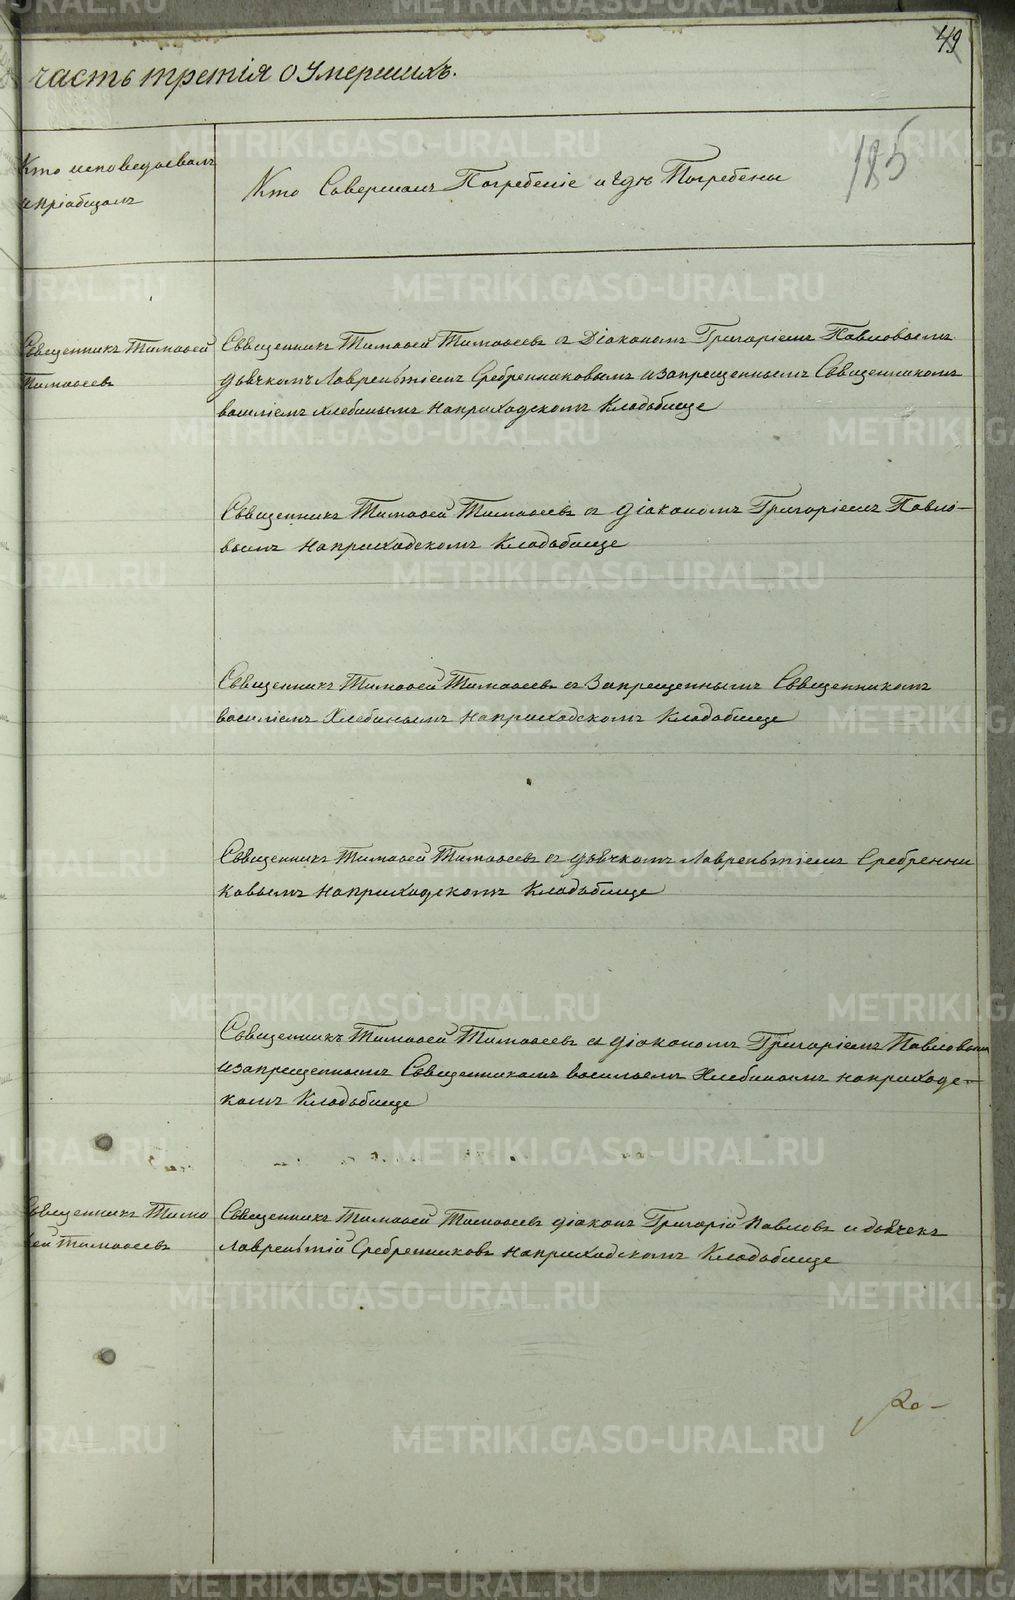 49
часть третія о умершихъ.
185
Кто исповедовалъ
и пріобщалъ
Кто Совершалъ Погребеніе и где Погребены
Священникъ Тимофей
Тимофеевъ
Священникъ Тимофей Тимофеевъ с Діакономъ Григоріемъ Павловымъ
дьячкомъ Лаврентіемъ Сребренниковымъ и запрещеннымъ Священникомъ
василіемъ хлебинымъ наприходскомъ Кладбище
Священникъ Тимофей Тимофеевъ с діакономъ Григоріемъ Павло-
вымъ наприходскомъ Кладбище
Священникъ Тимофей Тимофеевъ с Запрещеннымъ Священникомъ
василіемъ Хлебинымъ наприходскомъ Кладбище
Священникъ Тимофей Тимофеевъ с дьячкомъ Лаврентіемъ Сребренни
ковымъ наприходскомъ Кладбище
Священникъ Тимофей Тимофеевъ с діакономъ Григоріемъ Павловымъ
и запрещеннымъ Священникомъ васильемъ Хлебинымъ наприходс-
комъ Кладбище
Священникъ Тимо
фей Тимофеевъ
Священникъ Тимофей Тимофеевъ діаконъ Григорій Павловъ и дьячекъ
Лаврентій Сребренниковъ наприходскомъ Кладбище
METRIKI.GASO-URAL.RU